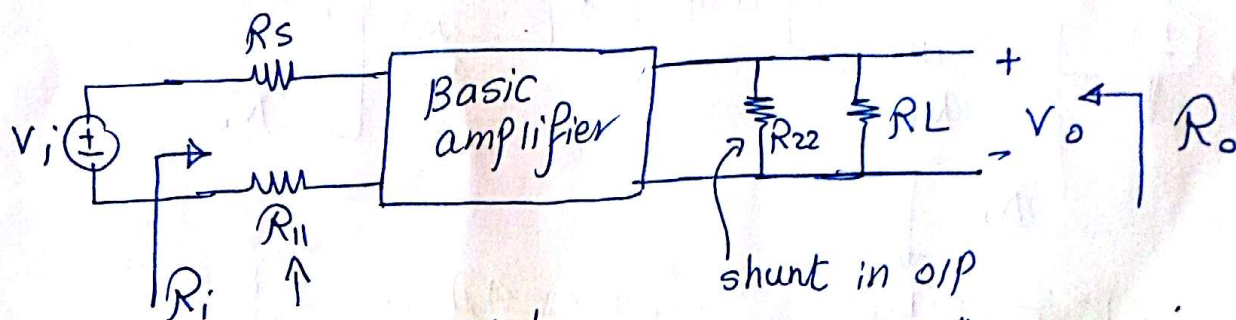 Rs
Basic
amplifier
Vi
+
-
R22
RL
+
Vo
-
Ro
R11
Ri
shunt in o/p